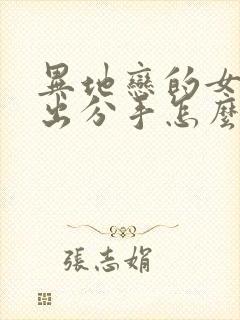 異地戀的女
出分手怎麼
張志娟